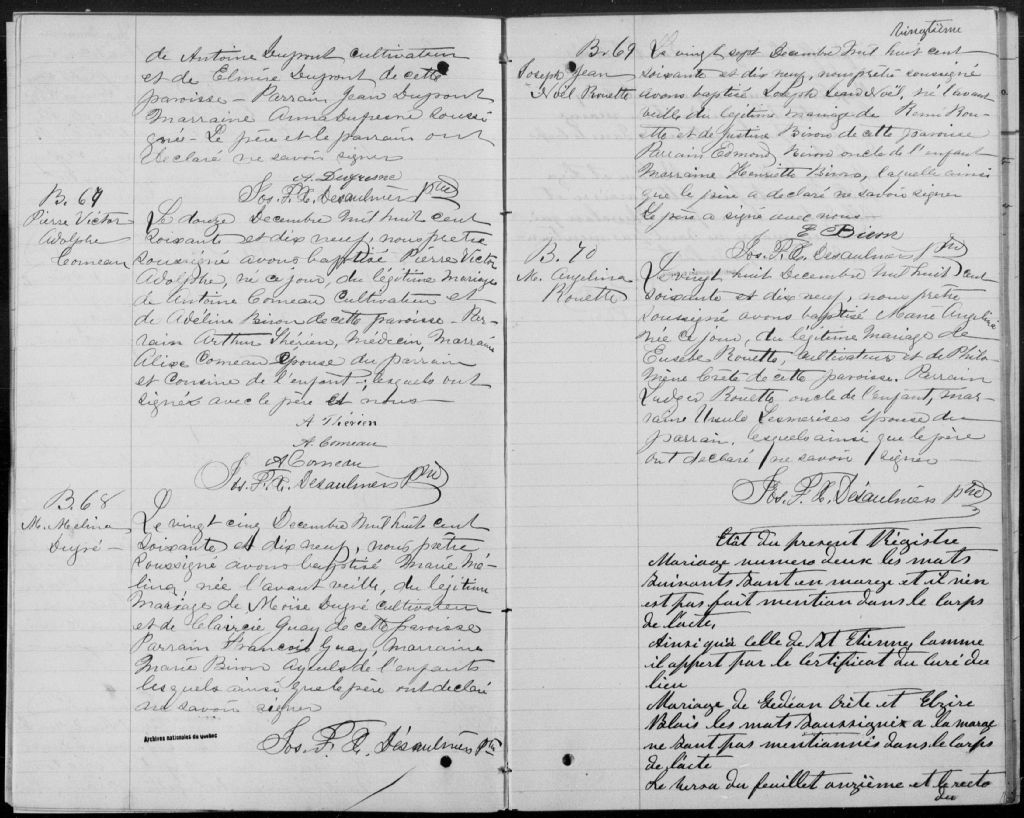 de Antoine Dupont cultivateur
et de Elmire Dupont de cette
paroisse – Parrain Jean Dupont
Marraine Anna Dufresne soussi
gnés – Le père et le parrain ont
déclaré ne savoir signer
A. Dufresne
Jos. F. X. Désaulniers Ptre
B. 67
Pierre Victor
Adolphe
Comeau
Le douze Decembre mil huit cent
soixante et dix neuf, nous prêtre
soussigné avons baptisé Pierre Victor
Adolphe, né ce jour, du légitime mariage
de Antoine Comeau Cultivateur et
de Adéline Biron de cette paroisse – Par
rain Arthur Thérien, Médecin, Marraine
Alice Comeau épouse du parrain
et Cousine de l'enfant; lesquels ont
signés avec le père et nous –
A Thérien
A. Comeau
A Comeau
Jos. F. X. Désaulniers Ptre
B. 68
M. Melina
Dugré –
Le vingt cinq Decembre mil huit cent
soixante et dix neuf, nous prêtre
soussigné avons baptisé Marie Mé-
lina, née l'avant veille, du légitime
mariage de Moïse Dugré cultivateur
et de Clarice Guay de cette paroisse
Parrain François Guay, Marraine
Marie Biron Ayeuls de l'enfant
lesquels ainsi que le père ont déclaré
ne savoir signer
Jos. F. X. Désaulniers Ptre
Archives nationales du Québec
Vingtième
B. 69
Joseph Jean
Noël Rouette
Le vingt sept Decembre mil huit cent
soixante et dix neuf, nous prêtre soussigné
avons baptisé Joseph Jean Noël, né l'avant
veille du légitime mariage de Remi Rou-
ette et de Justine Biron de cette paroisse
Parrain Edmond Biron oncle de l'enfant
Marraine Henriette Biron, laquelle ainsi
que le père a déclaré ne savoir signer
Le père a signé avec nous –
E Biron
Jos. F. X. Désaulniers Ptre
B. 70
M. Angelina
Rouette
Le vingt huit Decembre mil huit cent
soixante et dix neuf, nous prêtre
soussigné avons baptisé Marie Angelina
née ce jour, du légitime mariage de
Eusèbe Rouette, Cultivateur et de Philo-
mène Crête de cette paroisse. Parrain
Ludger Rouette oncle de l'enfant, mar-
raine Ursule Lesmerises épouse du
parrain, lesquels ainsi que le père
ont déclaré ne savoir signer –
Jos. F. X. Désaulniers Ptre
Etât du present Régistre
Mariage numero deux les mots
suivants sont en marge et il n'en
est pas fait mention dans le corps
de l'acte,
Ainsi qu'à celle de St Etienne, comme
il appert par le certificat du Curé du
lieu
Mariage de Gédéon Crête et Elzire
Blais les mots soussignés a la marge
ne sont pas mentionnés dans le corps
de l'acte
Le verso du feuillet onzième et le recto
du